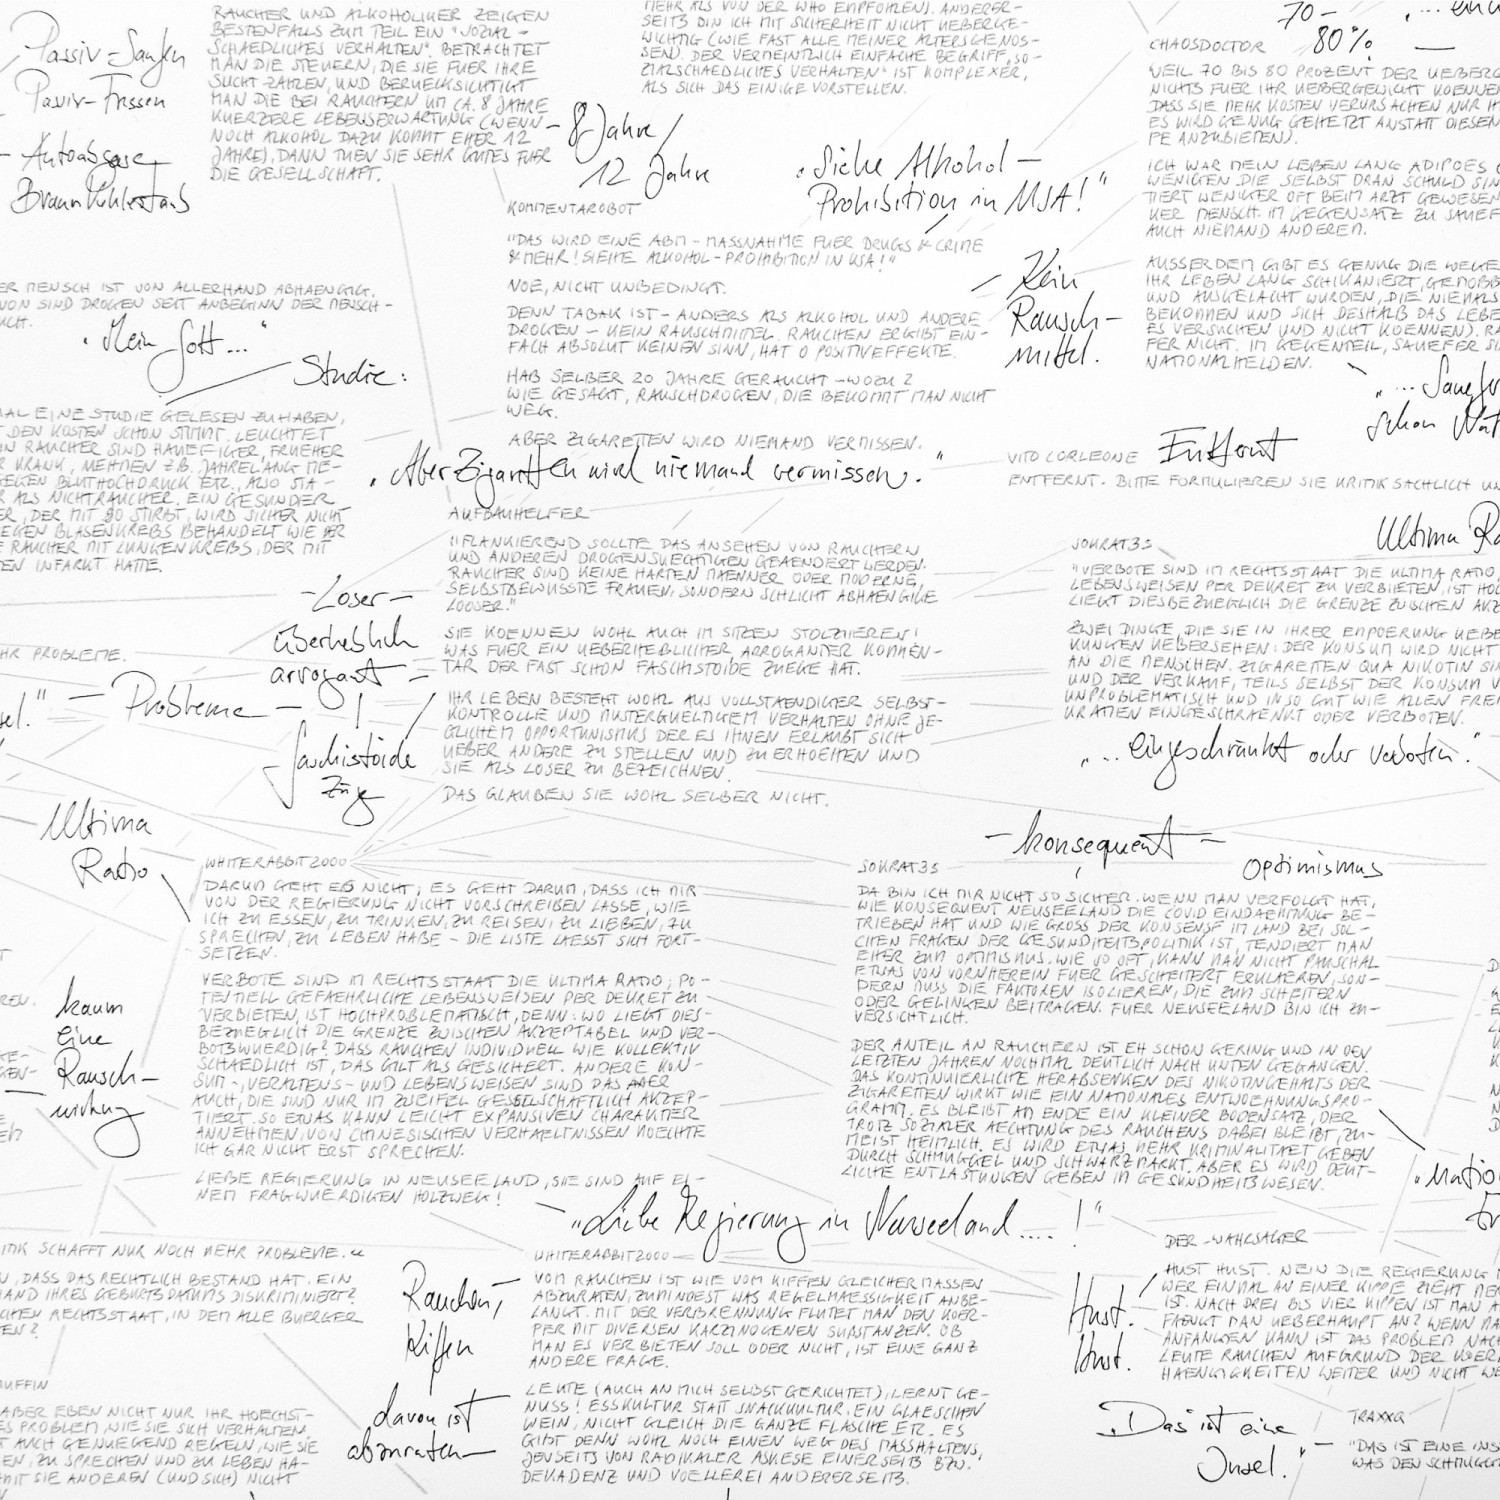 Passiv-Saufen
Passiv-Fressen
- Autoabgase,
Braunkohlestaub
RAUCHER UND ALKOHOLIKER ZEIGEN
BESTENFALLS ZUM TEIL EIN "SOZIAL-
SCHAEDLICHES VERHALTEN". BETRACHTET
MAN DIE STEUERN, DIE SIE FUER IHRE
SUCHT ZAHLEN, UND BERUECKSICHTIGT
MAN DIE BEI RAUCHERN UM CA. 8 JAHRE
KUERZERE LEBENSERWARTUNG (WENN
NOCH ALKOHOL DAZU KOMMT EHER 12
JAHRE), DANN TUEN SIE SEHR GUTES FUER
DIE GESELLSCHAFT.
- 8 Jahre /
12 Jahre
MEHR ALS VON DER WHO EMPFOHLEN). ANDERER-
SEITS BIN ICH MIT SICHERHEIT NICHT UEBERGE-
WICHTIG (WIE FAST ALLE MEINER ALTERSGENOS-
SEN). DER VERMEINTLICH EINFACHE BEGRIFF "SO-
ZIALSCHAEDLICHES VERHALTEN" IST KOMPLEXER,
ALS SICH DAS EINIGE VORSTELLEN.
"Siehe Alkohol-
Prohibition in USA!"
70-
80%
CHAOSDOCTOR
WEIL 70 BIS 80 PROZENT DER UEBERG
NICHTS FUER IHR UEBERGEWICHT KOENNEN
DASS SIE MEHR KOSTEN VERURSACHEN NUR
ES WIRD GENUG GEHETZT ANSTATT DIESEN
PE ANZUBIETEN).
ICH WAR MEIN LEBEN LANG ADIPOES
WENIGEN DIE SELBST DRAN SCHULD SIN
TIERT WENIGER OFT BEIM ARZT GEWESEN
KER MENSCH. IM GEGENSATZ ZU SAUEF
AUCH NIEMAND ANDEREM.
AUSSERDEM GIBT ES GENUG DIE WEGE
IHR LEBEN LANG SCHIKANIERT, GEMOBB
UND AUSGELACHT WURDEN, DIE NIEMALS
BEKOMMEN UND SICH DESHALB DAS LEBE
ES VERSUCHEN UND NICHT KOENNEN). RA
FER NICHT. IM GEGENTEIL, SAUEFER SI
NATIONALHELDEN.
KOMMENTAROBOT
"DAS WIRD EINE ABM-MASSNAHME FUER DRUGS & CRIME
& MEHR! SIEHE ALKOHOL-PROHIBITION IN USA!"
NOE, NICHT UNBEDINGT.
DENN TABAK IST - ANDERS ALS ALKOHOL UND ANDERE
DROGEN - KEIN RAUSCHMITTEL. RAUCHEN ERGIBT EIN-
FACH ABSOLUT KEINEN SINN, HAT 0 POSITIVEFFEKTE.
HAB SELBER 20 JAHRE GERAUCHT - WOZU?
WIE GESAGT, RAUSCHDROGEN, DIE BEKOMMT MAN NICHT
WEG.
ABER ZIGARETTEN WIRD NIEMAND VERMISSEN.
- Kein
Rausch-
mittel.
ER MENSCH IST VON ALLERHAND ABHAENGIG,
VON SIND DROGEN SEIT ANBEGINN DER MENSCH-
UCH.
"Mein Gott..."
Studie:
AL EINE STUDIE GELESEN ZU HABEN,
T DEN KOSTEN SCHON STIMMT. LEUCHTET
IN RAUCHER SIND HAEUFIGER, FRUEHER
R KRANK, NEHMEN Z.B. JAHRELANG ME-
GEGEN BLUTHOCHDRUCK ETC., ALSO STA-
R ALS NICHTRAUCHER. EIN GESUNDER
ER, DER MIT 90 STIRBT, WIRD SICHER NICHT
EGEN BLASENKREBS BEHANDELT WIE DER
E RAUCHER MIT LUNGENKREBS, DER MIT
EN INFARKT HATTE.
"Aber Zigaretten wird niemand vermissen."
"... Saeufer
schon
VITO CORLEONE
Entfernt
ENTFERNT. BITTE FORMULIEREN SIE KRITIK SACHLICH UN
AUFBAUHELFER
"FLANKIEREND SOLLTE DAS ANSEHEN VON RAUCHERN
UND ANDEREN DROGENSUECHTIGEN GEAENDERT WERDEN.
RAUCHER SIND KEINE HARTEN MAENNER ODER MODERNE,
SELBSTBEWUSSTE FRAUEN, SONDERN SCHLICHT ABHAENGIGE
LOOSER."
SIE KOENNEN WOHL AUCH IM SITZEN STOLZIEREN!
WAS FUER EIN UEBERHEBLICHER, ARROGANTER KOMMEN-
TAR DER FAST SCHON FASCHISTOIDE ZUEGE HAT.
IHR LEBEN BESTEHT WOHL AUS VOLLSTAENDIGER SELBST-
KONTROLLE UND MUSTERGUELTIGEM VERHALTEN OHNE JE-
GLICHEM OPPORTUNISMUS DER ES IHNEN ERLAUBT SICH
UEBER ANDERE ZU STELLEN UND ZU ERHOEHEN UND
SIE ALS LOSER ZU BEZEICHNEN.
DAS GLAUBEN SIE WOHL SELBER NICHT.
-Loser-
überheblich
arrogant
HR PROBLEME.
- Probleme -
faschistoide
Züge
Ultima Ra
SOKRAT35
"VERBOTE SIND IM RECHTSSTAAT DIE ULTIMA RATIO,
LEBENSWEISEN PER DEKRET ZU VERBIETEN, IST HOC
LIEGT DIESBEZUEGLICH DIE GRENZE ZWISCHEN AKZ
ZWEI DINGE, DIE SIE IN IHRER EMPOERUNG UEBE
KUNGEN UEBERSEHEN: DER KONSUM WIRD NICHT
AN DIE MENSCHEN. ZIGARETTEN QUA NIKOTIN SIN
UND DER VERKAUF, TEILS SELBST DER KONSUM V
UNPROBLEMATISCH UND IN SO GUT WIE ALLEN FREI
KRATIEN EINGESCHRAENKT ODER VERBOTEN.
"... eingeschränkt oder verboten."
Ultima
Ratio
- konsequent -
Optimismus
WHITERABBIT2000
DARUM GEHT ES NICHT; ES GEHT DARUM, DASS ICH MIR
VON DER REGIERUNG NICHT VORSCHREIBEN LASSE, WIE
ICH ZU ESSEN, ZU TRINKEN, ZU REISEN, ZU LIEBEN, ZU
SPRECHEN, ZU LEBEN HABE - DIE LISTE LAESST SICH FORT-
SETZEN.
VERBOTE SIND IM RECHTSSTAAT DIE ULTIMA RATIO; PO-
TENTIELL GEFAEHRLICHE LEBENSWEISEN PER DEKRET ZU
VERBIETEN, IST HOCHPROBLEMATISCH, DENN: WO LIEGT DIES-
BEZUEGLICH DIE GRENZE ZWISCHEN AKZEPTABEL UND VER-
BOTSWUERDIG? DASS RAUCHEN INDIVIDUELL WIE KOLLEKTIV
SCHAEDLICH IST, DAS GILT ALS GESICHERT. ANDERE KON-
SUM-, VERHALTENS- UND LEBENSWEISEN SIND DAS ABER
AUCH, DIE SIND NUR IM ZWEIFEL GESELLSCHAFTLICH AKZEP-
TIERT. SO ETWAS KANN LEICHT EXPANSIVEN CHARAKTER
ANNEHMEN, VON CHINESISCHEN VERHAELTNISSEN MOECHTE
ICH GAR NICHT ERST SPRECHEN.
LIEBE REGIERUNG IN NEUSEELAND, SIE SIND AUF EI-
NEM FRAGWUERDIGEN HOLZWEG!
kaum
eine
Rausch-
wirkung
SOKRAT35
DA BIN ICH MIR NICHT SO SICHER. WENN MAN VERFOLGT HAT,
WIE KONSEQUENT NEUSEELAND DIE COVID EINDAEMMUNG BE-
TRIEBEN HAT UND WIE GROSS DER KONSENS IM LAND BEI SOL-
CHEN FRAGEN DER GESUNDHEITSPOLITIK IST, TENDIERT MAN
EHER ZUM OPTIMISMUS. WIE SO OFT, KANN MAN NICHT PAUSCHAL
ETWAS VON VORNHEREIN FUER GESCHEITERT ERKLAEREN, SON-
DERN MUSS DIE FAKTOREN ISOLIEREN, DIE ZUM SCHEITERN
ODER GELINGEN BEITRAGEN. FUER NEUSEELAND BIN ICH ZU-
VERSICHTLICH.
DER ANTEIL AN RAUCHERN IST EH SCHON GERING UND IN DEN
LETZTEN JAHREN NOCHMAL DEUTLICH NACH UNTEN GEGANGEN.
DAS KONTINUIERLICHE HERABSENKEN DES NIKOTINGEHALTS DER
ZIGARETTEN WIRKT WIE EIN NATIONALES ENTWOEHNUNGSPRO-
GRAMM. ES BLEIBT AM ENDE EIN KLEINER BODENSATZ, DER
TROTZ SOZIALER AECHTUNG DES RAUCHENS DABEI BLEIBT, ZU-
MEIST HEIMLICH. ES WIRD ETWAS MEHR KRIMINALITAET GEBEN
DURCH SCHMUGGEL UND SCHWARZMARKT. ABER ES WIRD DEUT-
LICHE ENTLASTUNGEN GEBEN IM GESUNDHEITSWESEN.
"Liebe Regierung in Neuseeland....!"
TIK SCHAFFT NUR NOCH MEHR PROBLEME."
N, DASS DAS RECHTLICH BESTAND HAT. EIN
MAND IHRES GEBURTSDATUMS DISKRIMINIERT?
CHEN RECHTSSTAAT, IN DEM ALLE BUERGER
EN?
Rauchen,
Kiffen
davon ist
abzuraten-
WHITERABBIT2000
VOM RAUCHEN IST WIE VOM KIFFEN GLEICHERMASSEN
ABZURATEN, ZUMINDEST WAS REGELMAESSIGKEIT ANBE-
LANGT. MIT DER VERBRENNUNG FLUTET MAN DEN KOER-
PER MIT DIVERSEN KARZINOGENEN SUBSTANZEN. OB
MAN ES VERBIETEN SOLL ODER NICHT, IST EINE GANZ
ANDERE FRAGE.
LEUTE (AUCH AN MICH SELBST GERICHTET), LERNT GE-
NUSS! ESSKULTUR STATT SNACKKULTUR. EIN GLAESCHEN
WEIN, NICHT GLEICH DIE GANZE FLASCHE ETC. ES
GIBT DENN WOHL NOCH EINEN WEG DES MASSHALTENS,
JENSEITS VON RADIKALER ASKESE EINERSEITS BZW.
DEKADENZ UND VOELLEREI ANDERERSEITS.
UFFIN
ABER EBEN NICHT NUR IHR HOECHST-
ES PROBLEM, WIE SIE SICH VERHALTEN.
T AUCH GENUEGEND REGELN, WIE SIE
EN, ZU SPRECHEN UND ZU LEBEN HA-
MIT SIE ANDEREN (UND SICH) NICHT
DER_WAHRSAGER
HUST HUST. NEIN DIE REGIERUNG
WER EINMAL AN EINER KIPPE ZIEHT
IST. NACH DREI BIS VIER KIPPEN IST MAN
FAENGT MAN UEBERHAUPT AN? WENN MA
ANFANGEN KANN IST DAS PROBLEM NACH
LEUTE RAUCHEN AUFGRUND DER KOER
HAENGIGKEITEN WEITER UND NICHT WE
Hust.
Hust.
"Das ist eine
Insel."
TRAXXA
"DAS IST EINE INS
WAS DEN SCHMUGG